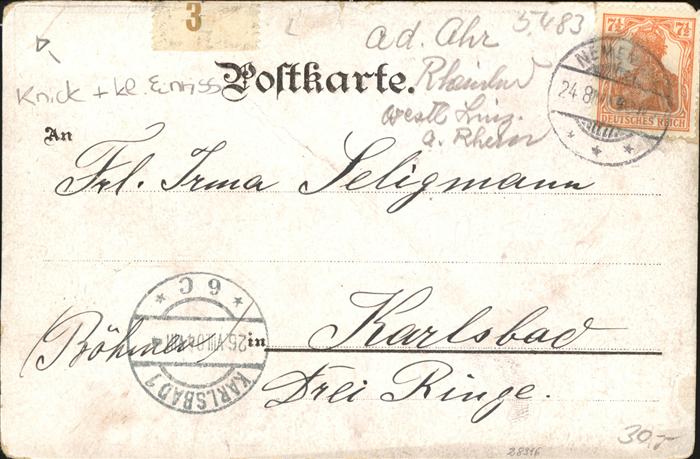 3
5.483
7½ 7½
ad. Ahr
Postkarte.
Knick + kl. Einriss
Rheinland
westl Linz.
a. Rhein
24.8
DEUTSCHES REICH
An
Frl. Irma Seligmann
* 6 C *
26.VIII.04
KARLSBAD 1
Böhmen in Karlsbad
Drei Ringe.
30,-
28916